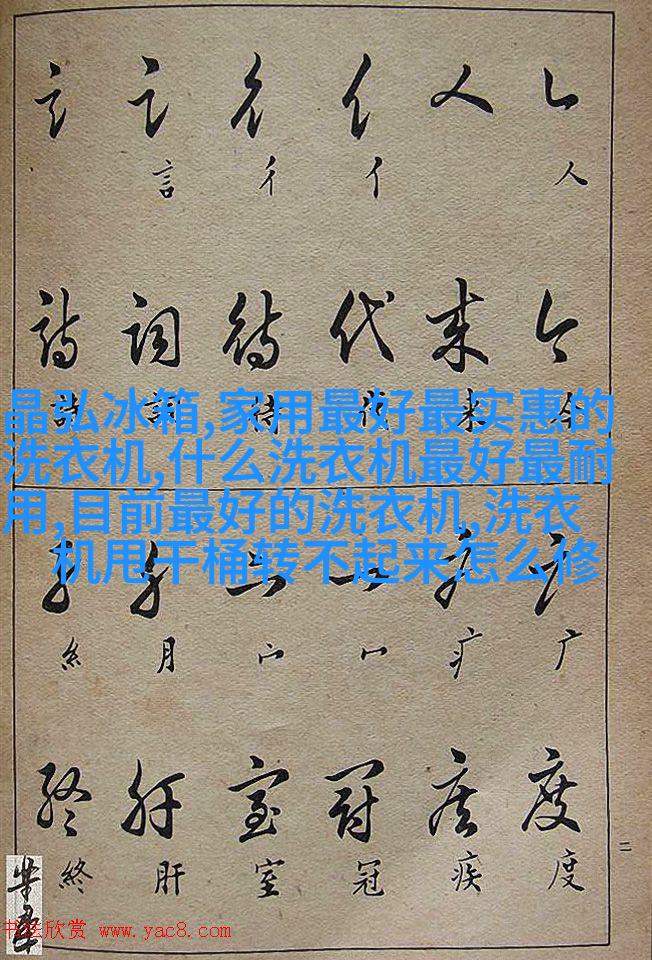 言 彳 亻 人
詩 詞 待 代 来 今
晶弘冰箱,家用最好最实惠的
洗衣机,什么洗衣机最好最耐
用,目前最好的洗衣机,洗衣
机甩干桶转不起来怎么修
糸 月 宀 冖 疒 广
終 肝 室 冠 疾 度
二
終 肝 室 冠 疾 度
书法欣赏 www.yac8.com